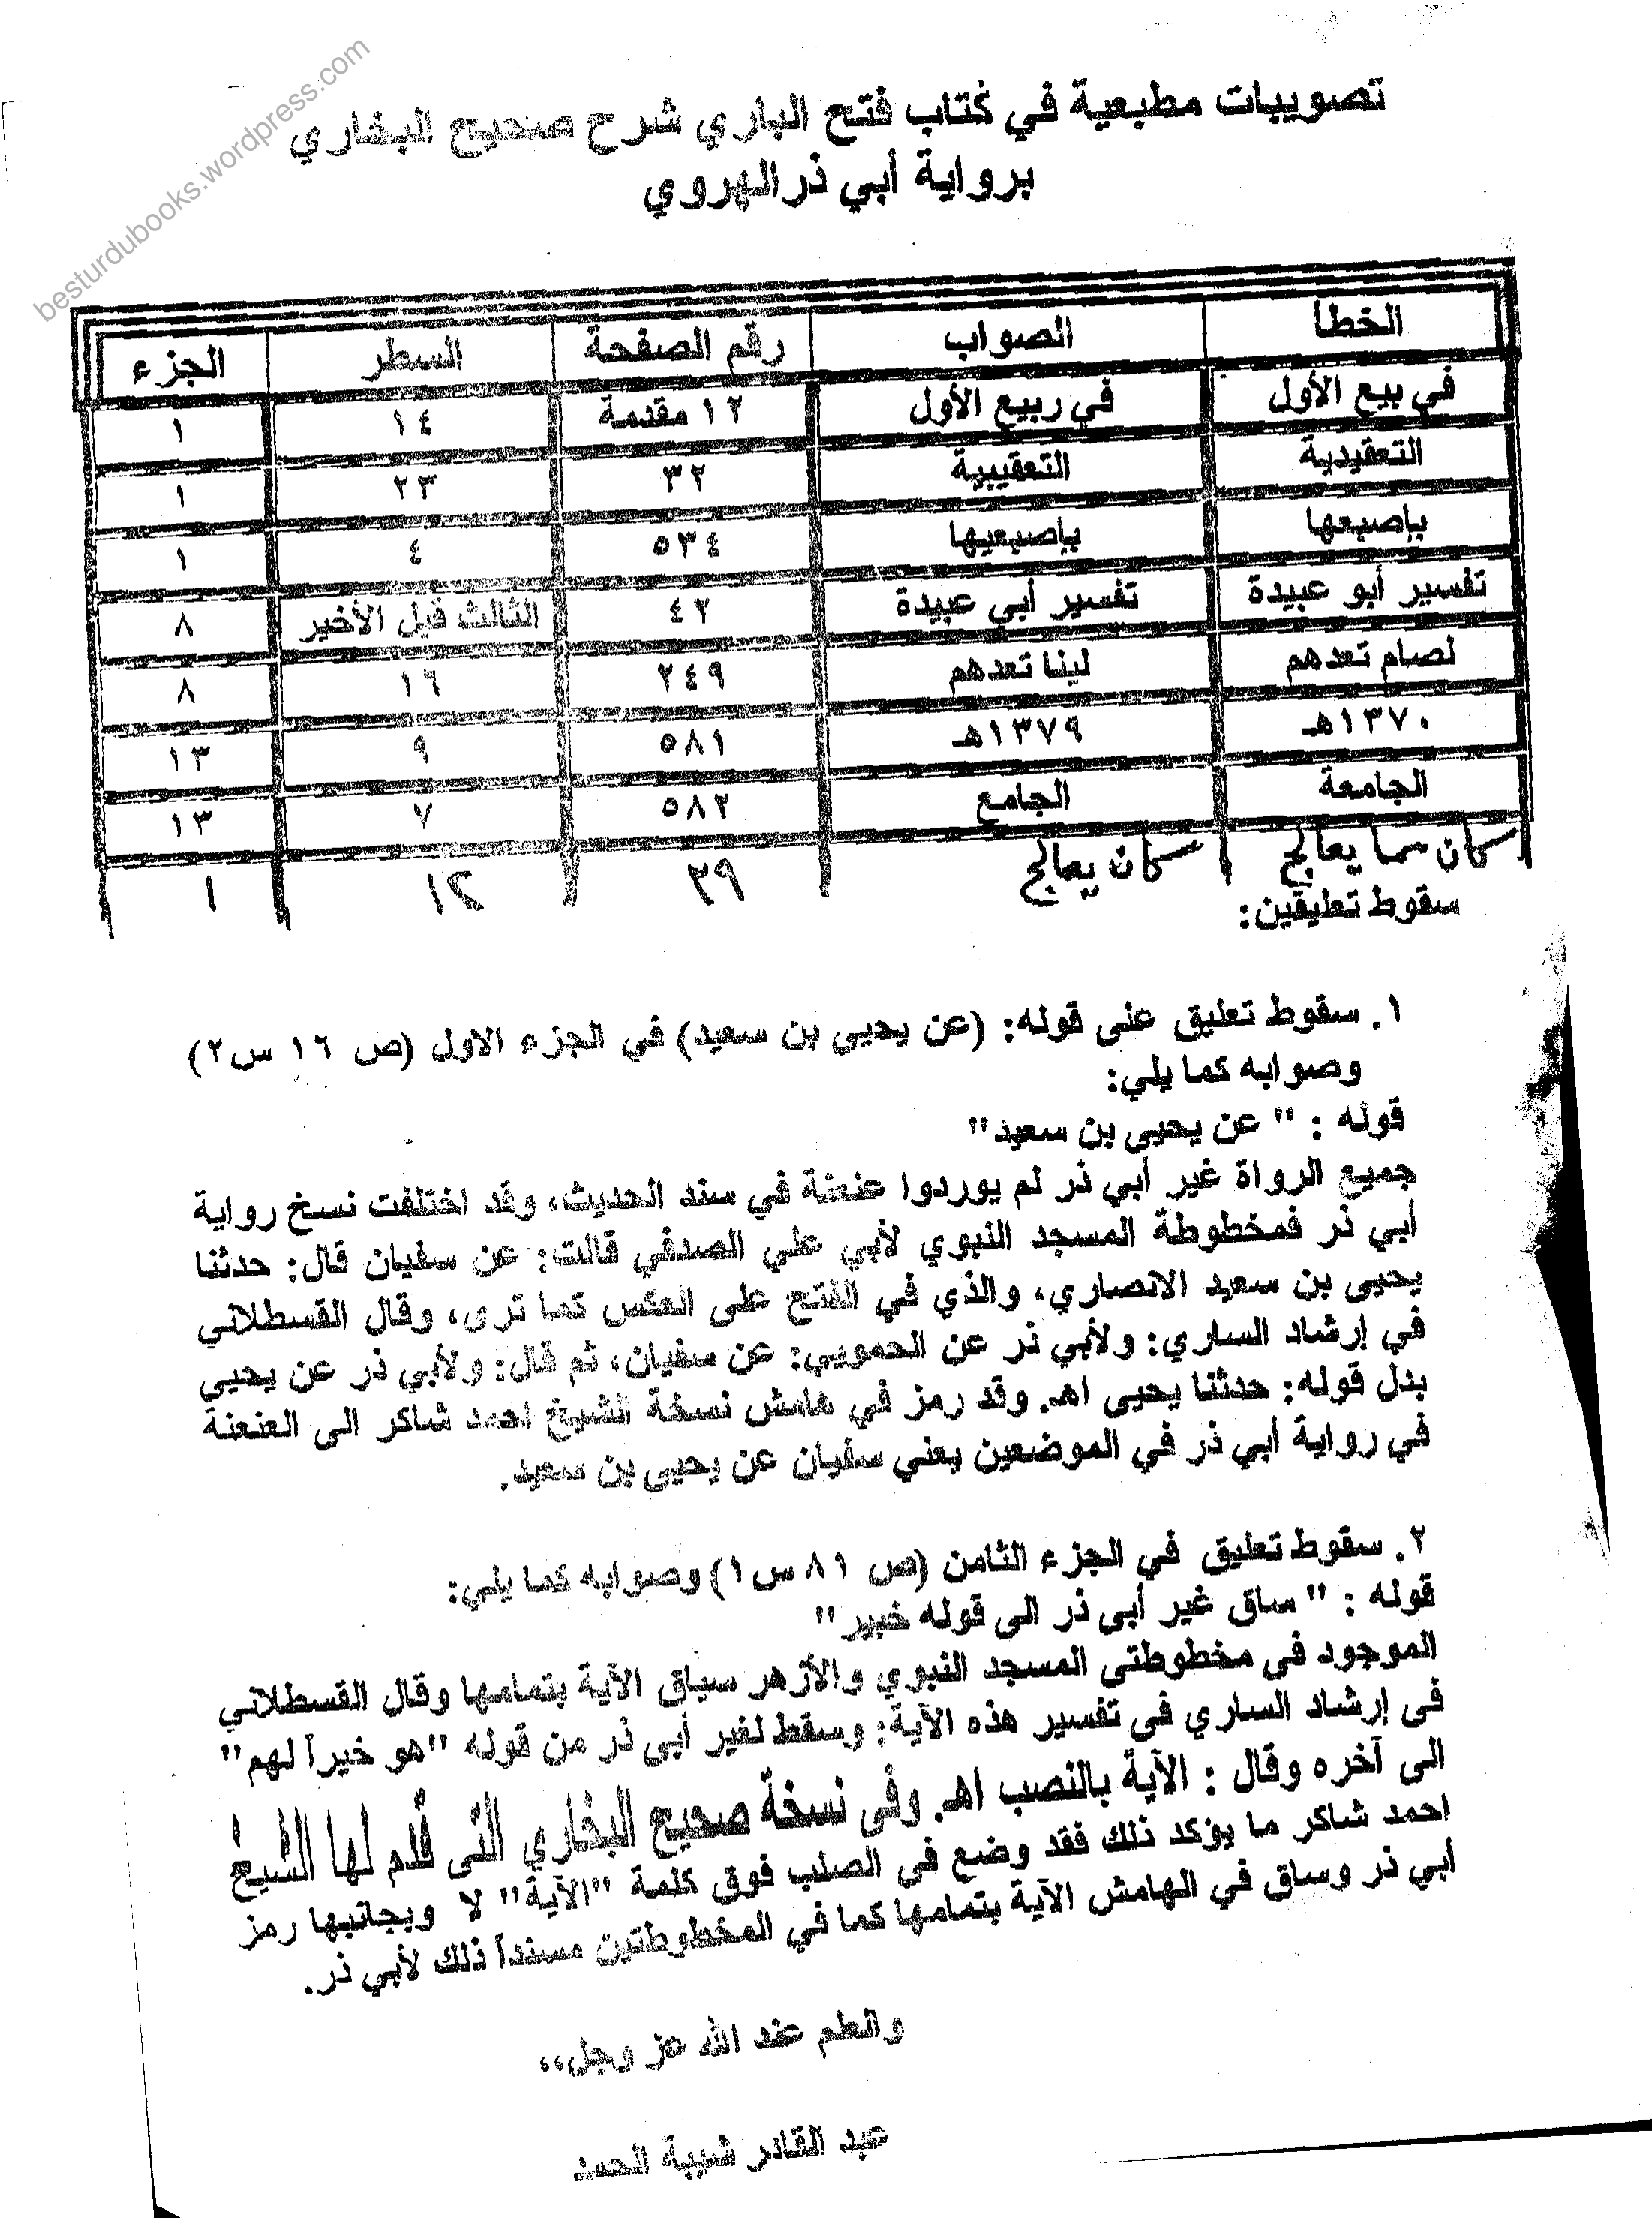 besturdubooks.wordpress.com
تصويبات مطبعية في كتاب فتح الباري شرح صحيح البخاري
برواية أبي ذر الهروي
الخطأ الصواب رقم الصفحة السطر الجزء
في بيع الأول في ربيع الأول ١٢ مقدمة ١٤ ١
التعقيدية التعقيبية ٣٢ ٢٣ ١
بإصبعها بإصبعيها ٥٣٤ ٤ ١
تفسير أبو عبيدة تفسير أبي عبيدة ٤٢ الثالث قبل الأخير ٨
لصام تعدهم لينا تعدهم ٢٤٩ ١٦ ٨
١٣٧٠هـ ١٣٧٩هـ ٥٨١ ٩ ١٣
الجامعة الجامع ٥٨٢ ٧ ١٣
كان مما يعالج كان يعالج ٢٩ ١٢ ١
سقوط تعليقين:
١. سقوط تعليق على قوله: (عن يحيى بن سعيد) في الجزء الاول (ص ١٦ س٢)
وصوابه كما يلي:
قوله : " عن يحيى بن سعيد"
جميع الرواة غير أبي ذر لم يوردوا عنعنة في سند الحديث، وقد اختلفت نسخ رواية
أبي ذر فمخطوطة المسجد النبوي لأبي علي الصدفي قالت: عن سفيان قال: حدثنا
يحيى بن سعيد الانصاري، والذي في الفتح على العكس كما ترى، وقال القسطلاني
في إرشاد الساري: ولأبي ذر عن الحمويي: عن سفيان، ثم قال: ولأبي ذر عن يحيي
بدل قوله: حدثنا يحيى اهـ. وقد رمز في هامش نسخة الشيخ احمد شاكر الى العنعنة
في رواية أبي ذر في الموضعين يعني سفيان عن يحيى بن سعيد.
٢. سقوط تعليق في الجزء الثامن (ص ٨١ س١) وصوابه كما يلي:
قوله : " ساق غير أبى ذر الى قوله خبير"
الموجود فى مخطوطتى المسجد النبوي والأزهر سياق الآية بتمامها وقال القسطلاني
فى إرشاد الساري فى تفسير هذه الآية: وسقط لغير أبى ذر من قوله "هو خيراً لهم"
الى آخره وقال : الآية بالنصب اهـ. وفى نسخة صحيح البخاري التى قدم لها الشيخ
احمد شاكر ما يؤكد ذلك فقد وضع فى الصلب فوق كلمة "الآية" لا وبجانبها رمز
أبي ذر وساق في الهامش الآية بتمامها كما في المخطوطتين مسنداً ذلك لأبي ذر.
والعلم عند الله عز وجل،،
عبد القادر شيبة الحمد